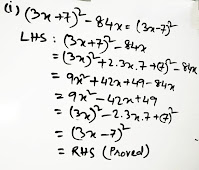 (i) (3x+7)² - 84x = (3x-7)²
LHS : (3x+7)² - 84x
= (3x)² + 2.3x.7 + (7)² - 84x
= 9x² + 42x + 49 - 84x
= 9x² - 42x + 49
= (3x)² - 2.3x.7 + (7)²
= (3x - 7)²
= RHS (Proved)